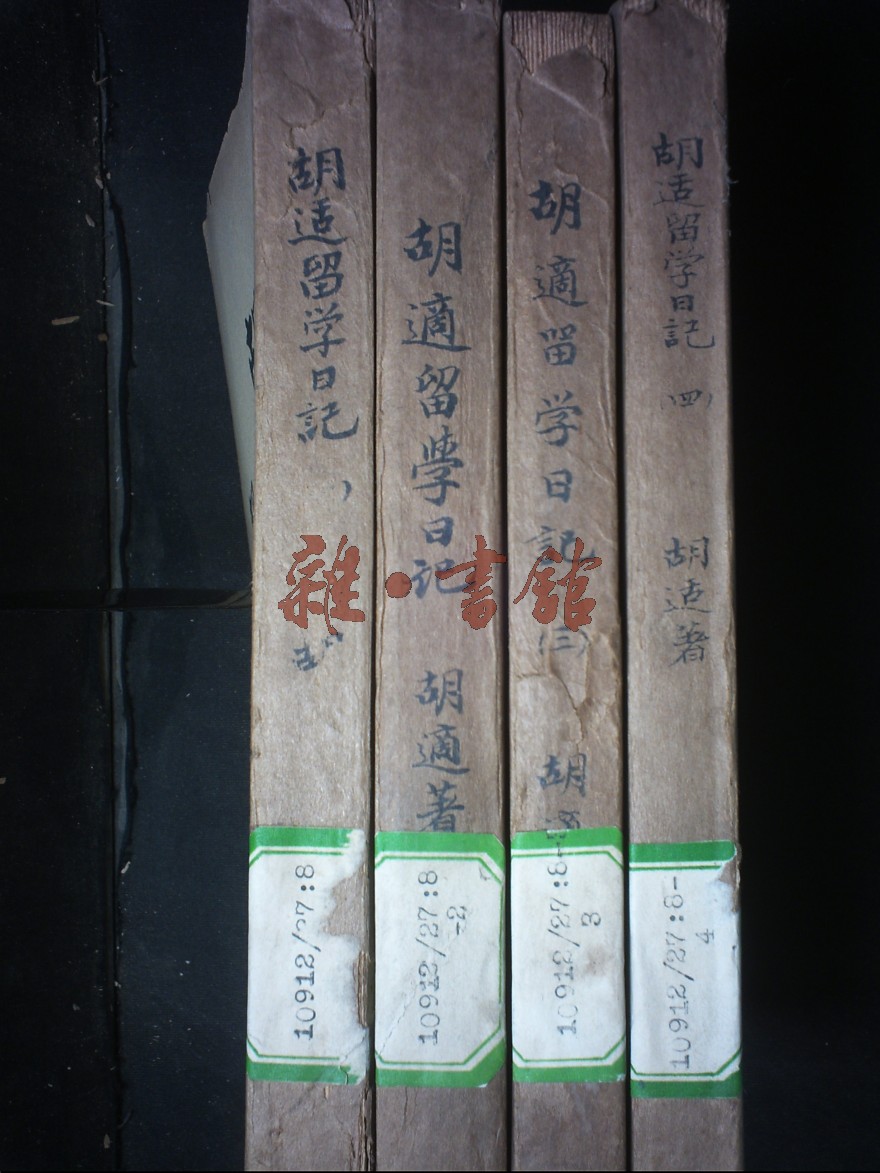 胡适留学日記
10912/27:8
胡適留學日记
胡適著
10912/27:8
-2
胡適留学日記
(三)
胡適
10912/27:8-
3
胡适留学日記
(四)
胡适著
10912/27:8-
4
雜·書館